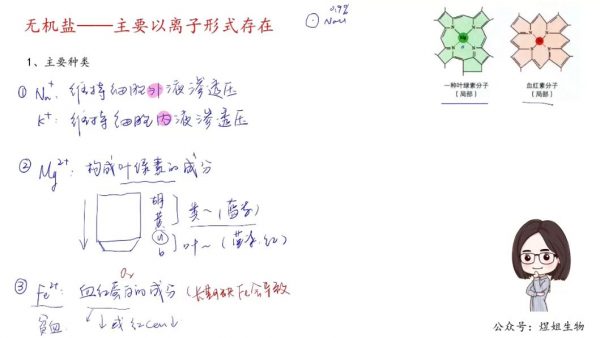 无机盐——主要以离子形式存在
0.9%
NaCl
1、主要种类
① Na⁺: 维持细胞外液渗透压
K⁺: 维持细胞内液渗透压
② Mg²⁺: 构成叶绿素的成分
胡
黄
a
b
类~(蓝紫)
叶~(蓝紫.红)
③ Fe²⁺: 血红蛋白的成分(长期缺Fe会导致
O₂
贫血
↓或红cell↓
一种叶绿素分子
(局部)
血红素分子
(局部)
公众号:煜姐生物